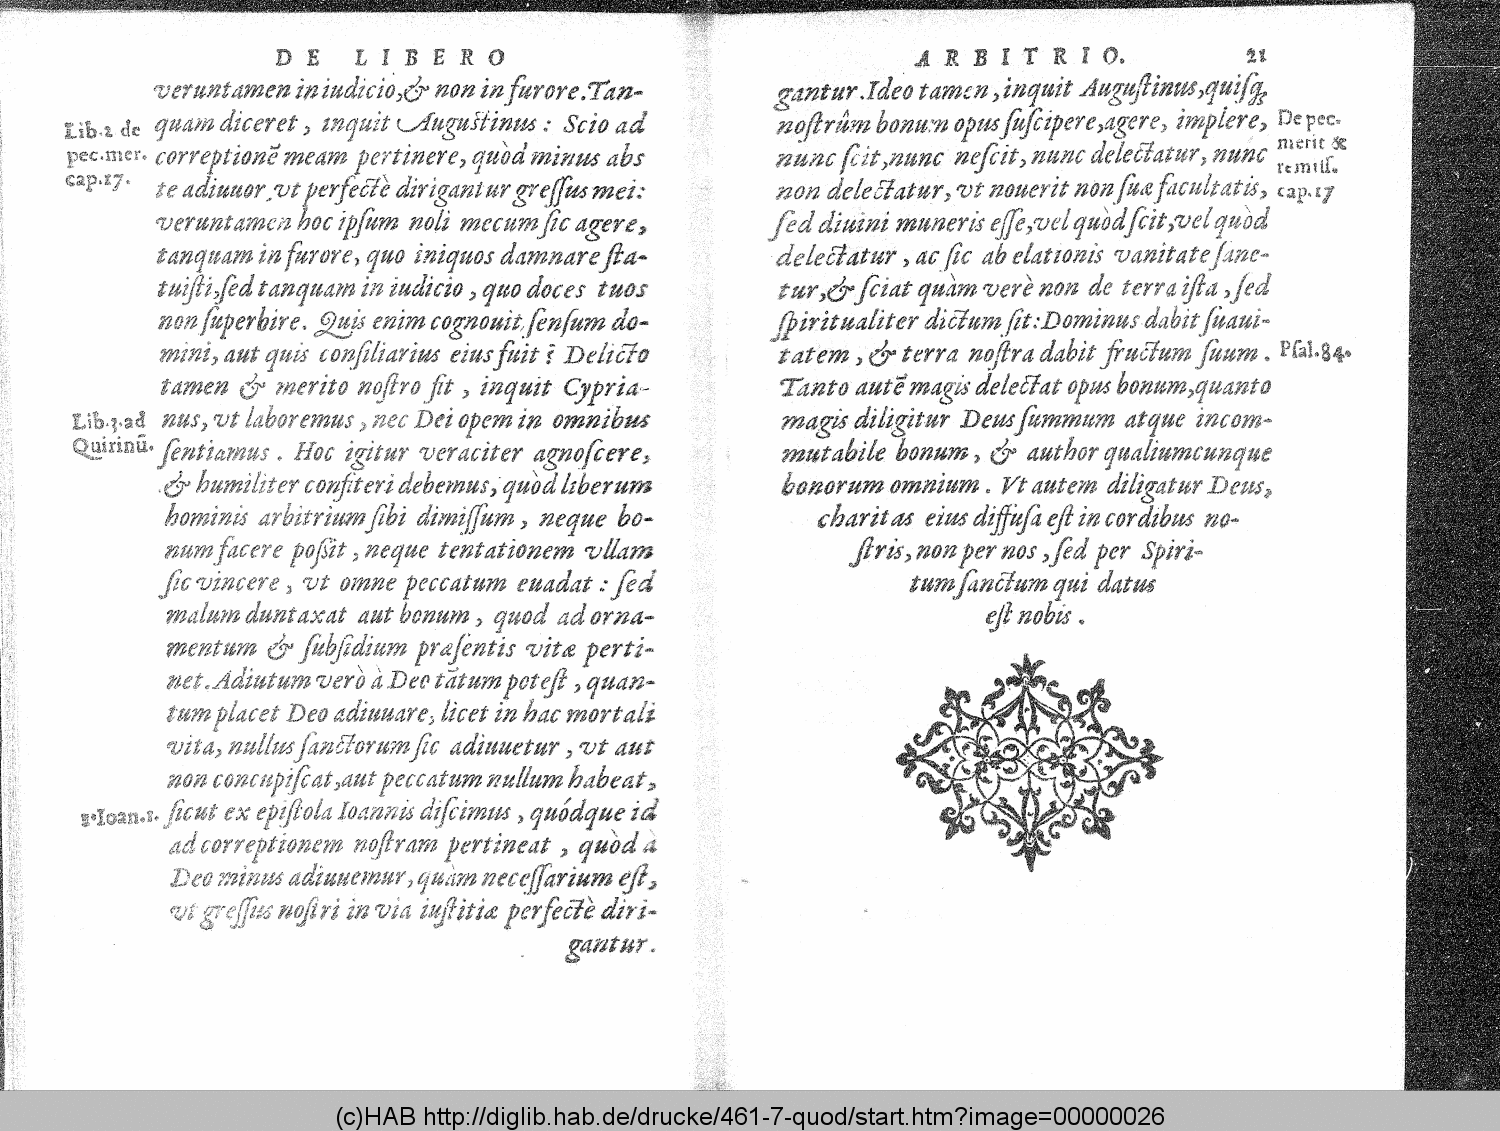 DE LIBERO
veruntamen in iudicio, & non in furore. Tan-
quam diceret, inquit Augustinus: Scio ad
correptionē meam pertinere, quòd minus abs
te adiuuor, vt perfectè dirigantur gressus mei:
veruntamen hoc ipsum noli mecum sic agere,
tanquam in furore, quo iniquos damnare sta-
tuisti, sed tanquam in iudicio, quo doces tuos
non superbire. Quis enim cognouit sensum do-
mini, aut quis consiliarius eius fuit? Delicto
tamen & merito nostro fit, inquit Cypria-
nus, vt laboremus, nec Dei opem in omnibus
sentiamus. Hoc igitur veraciter agnoscere,
& humiliter confiteri debemus, quòd liberum
hominis arbitrium sibi dimissum, neque bo-
num facere possit, neque tentationem vllam
sic vincere, vt omne peccatum euadat: sed
malum duntaxat aut bonum, quod ad orna-
mentum & subsidium præsentis vitæ perti-
net. Adiutum verò à Deo tātum potest, quan-
tum placet Deo adiuuare, licet in hac mortali
vita, nullus sanctorum sic adiuuetur, vt aut
non concupiscat, aut peccatum nullum habeat,
sicut ex epistola Ioannis discimus, quódque id
ad correptionem nostram pertineat, quòd à
Deo minus adiuuemur, quàm necessarium est,
vt gressus nostri in via iustitiæ perfectè diri-
gantur.
Lib.2 de
pec.mer.
cap.17.
Lib.3.ad
Quirinū.
1.Ioan.1.
ARBITRIO. 21
gantur. Ideo tamen, inquit Augustinus, quisq;
nostrûm bonum opus suscipere, agere, implere,
nunc scit, nunc nescit, nunc delectatur, nunc
non delectatur, vt nouerit non suæ facultatis,
sed diuini muneris esse, vel quòd scit, vel quòd
delectatur, ac sic ab elationis vanitate sane-
tur, & sciat quàm verè non de terra ista, sed
spiritualiter dictum sit: Dominus dabit suaui-
tatem, & terra nostra dabit fructum suum.
Tanto autē magis delectat opus bonum, quanto
magis diligitur Deus summum atque incom-
mutabile bonum, & author qualiumcunque
bonorum omnium. Vt autem diligatur Deus,
charitas eius diffusa est in cordibus no-
stris, non per nos, sed per Spiri-
tum sanctum qui datus
est nobis.
De pec.
merit &
remiss.
cap.17
Psal.84.
(c)HAB http://diglib.hab.de/drucke/461-7-quod/start.htm?image=00000026